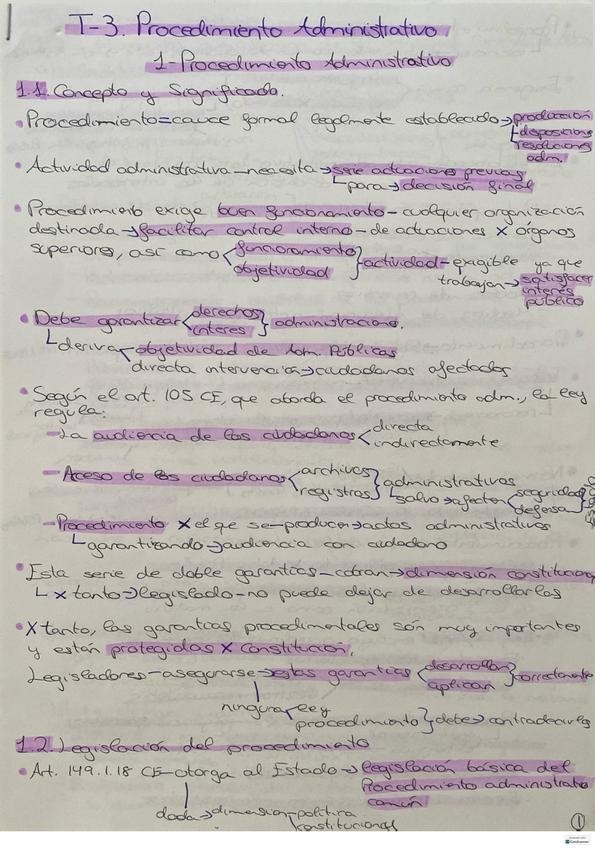 T-3. Procedimiento Administrativo
1-Procedimiento Administrativo
1.1. Concepto y Significado.
• Procedimiento = cauce formal legalmente establecido → producción
disposiciones
resoluciones
adm.
• Actividad administrativa - necesita → serie actuaciones previas
para → decisión final
• Procedimiento exige buen funcionamiento - cualquier organización
destinada → facilitar control interno - de actuaciones x órganos
superiores, así como < funcionamiento
objetividad } actividad - exigible ya que
trabajan → satisfacer
interés
público
• Debe garantizar < derechos
interes } administraciones.
deriva < objetividad de Adm. Públicas
directa intervención → ciudadanos afectados
• Según el art. 105 CE, que aborda el procedimiento adm., la ley
regula:
- La audiencia de los ciudadanos < directa
indirectamente
- Acceso de los ciudadanos < archivos
registros } administrativos
salvo → afecten < seguridad
defensa }
- Procedimiento x el que se - producen → actos administrativos
garantizando → audiencia con ciudadano
• Esta serie de doble garantías - cobran → dimensión constitucional
x tanto → legislador - no puede dejar de desarrollarlas
• X tanto, las garantías procedimentales son muy importantes
y están protegidas x Constitución.
Legisladores - asegurarse → estas garantías < desarrollan
aplican } correctamente
ninguna < ley
procedimiento } debe → contradecirles
1.2. Legislación del procedimiento
• Art. 149.1.18 CE - otorga al Estado → legislación básica del
Procedimiento administrativo
común
dada → dimensión - política
constitucional
1
CamScanner